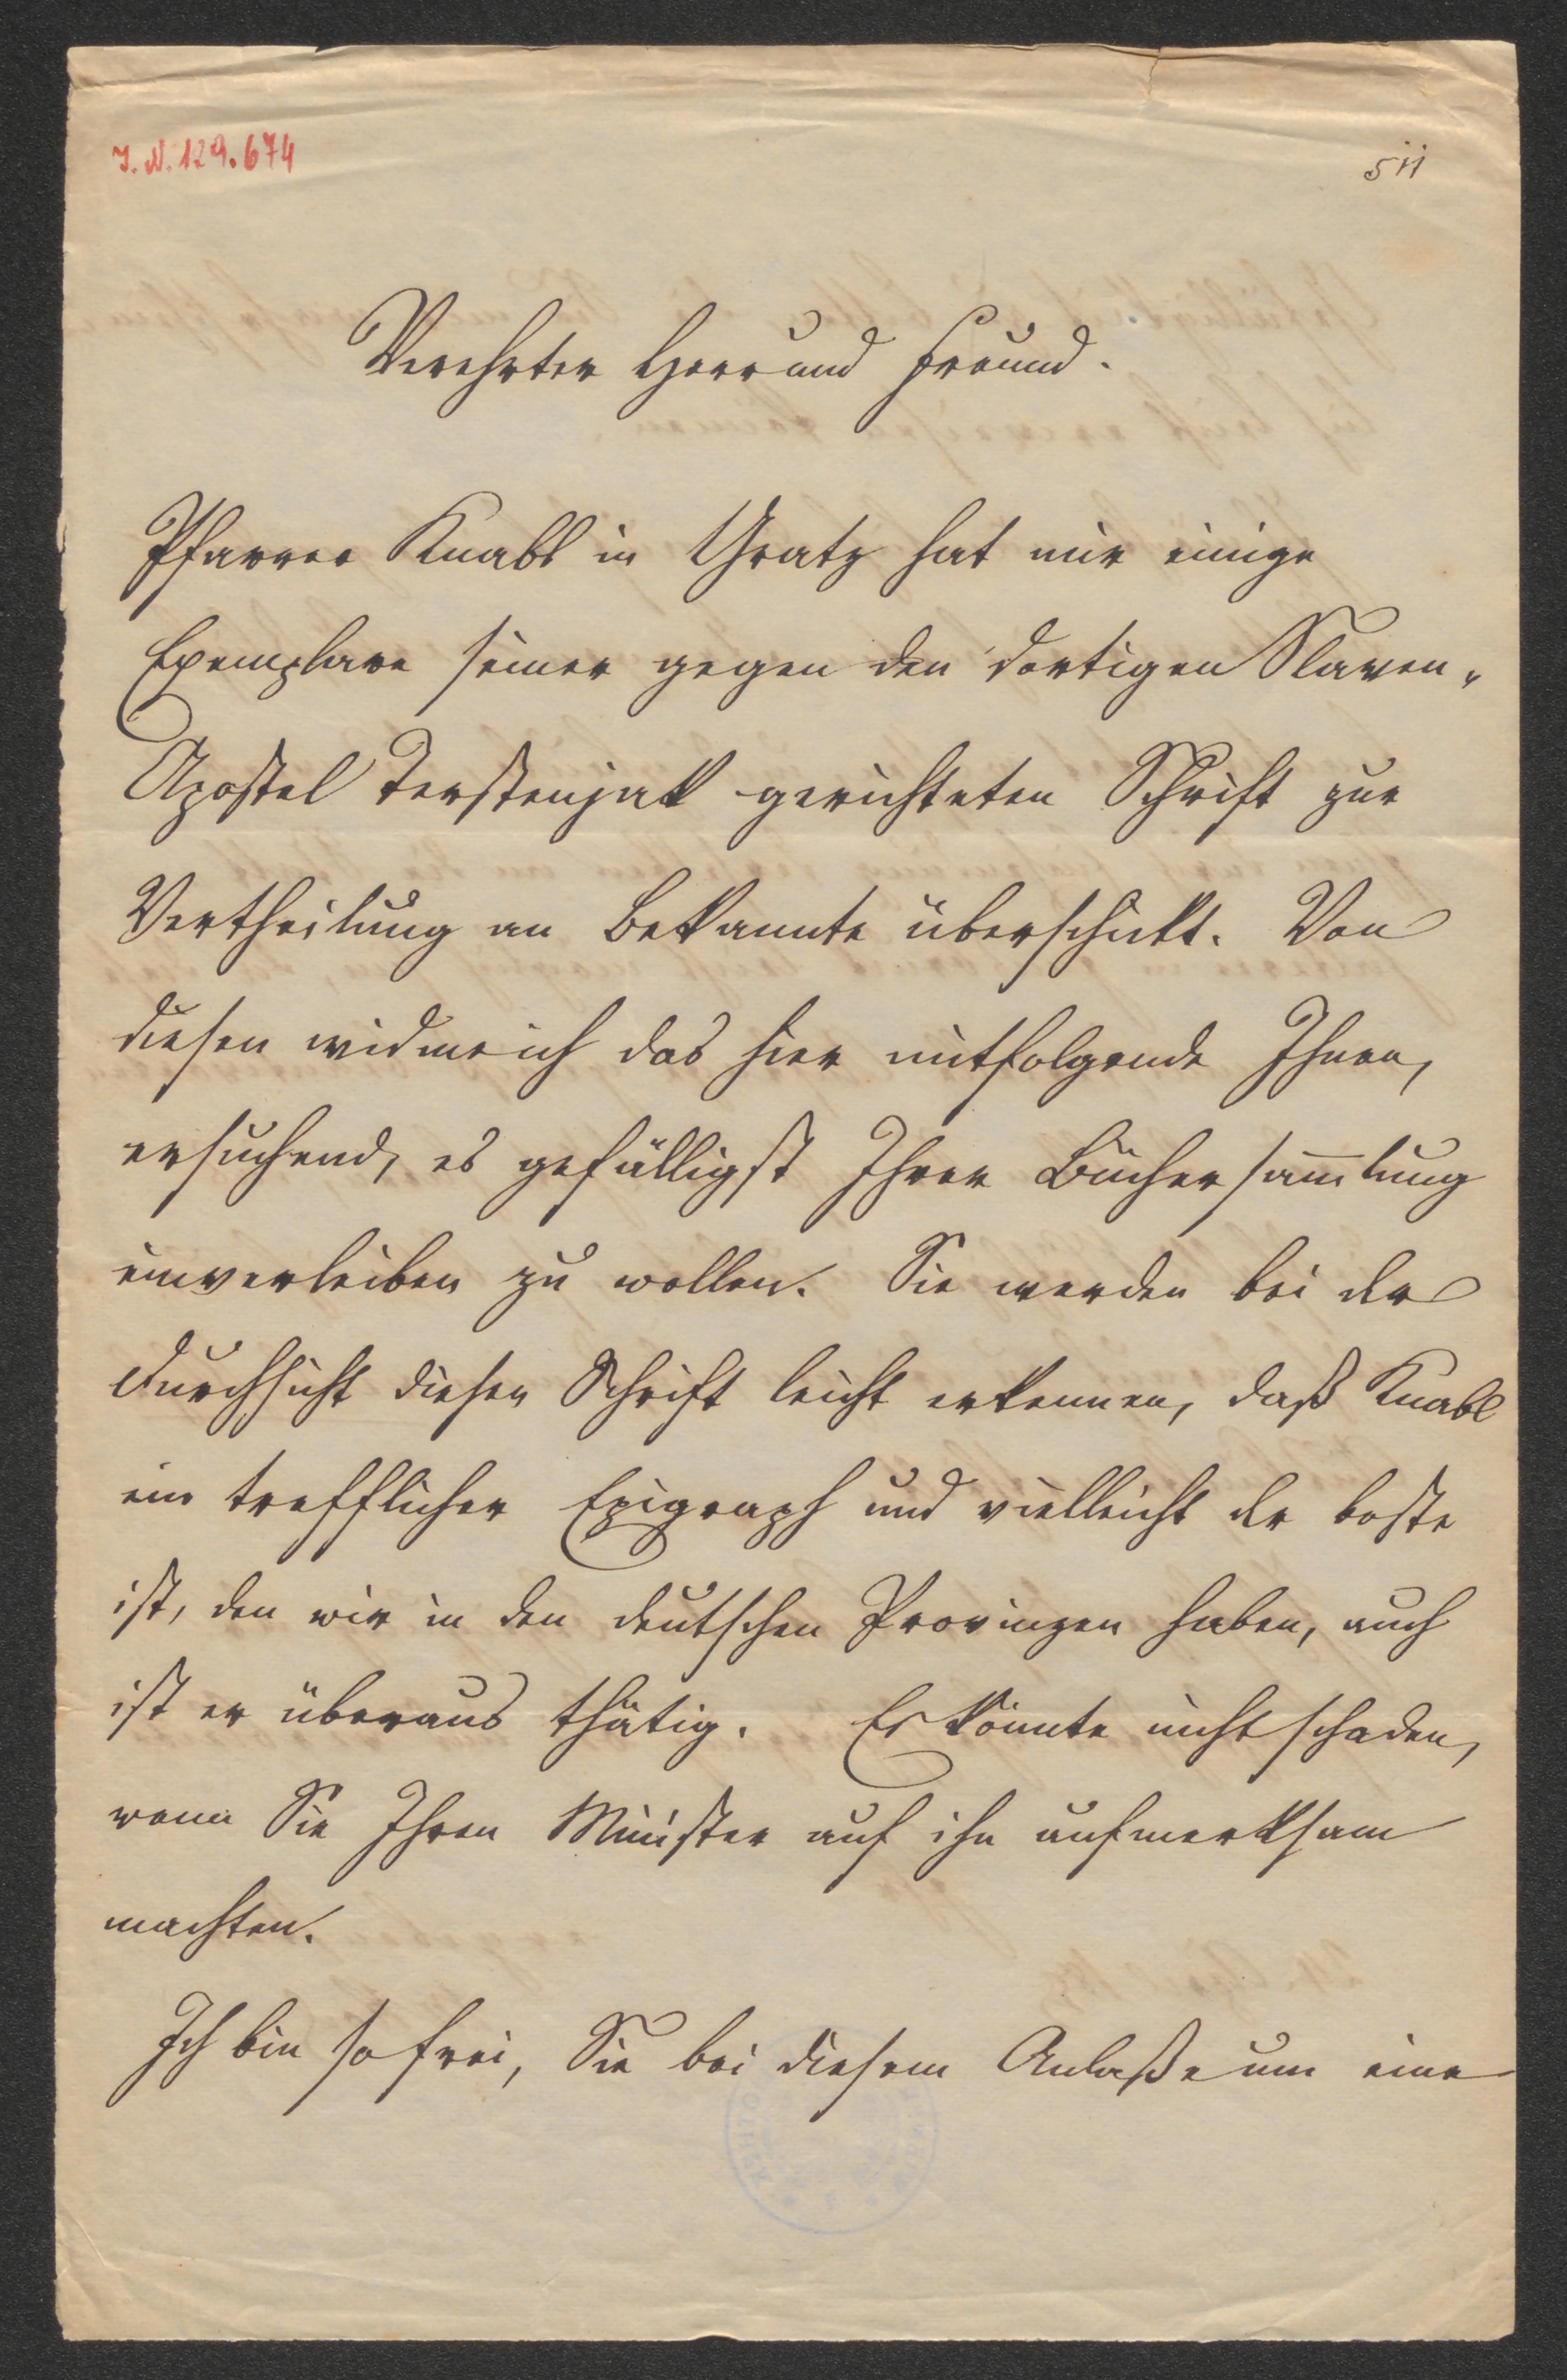 J. N. 129.674
511
Verehrter Herr und Freund.
Pfarrer Knabl in Gratz hat mir einige
Exemplare seiner gegen den dortigen Slaven-
Apostel Terstenjak gerichteten Schrift zur
Vertheilung an Bekannte überschickt. Von
diesen widme ich das hier mitfolgende Ihnen,
ersuchend, es gefälligst Ihrer Büchersam̅lung
einverleiben zu wollen. Sie werden bei der
Durchsicht dieser Schrift leicht erkennen, daß Knabl
ein trefflicher Epigraph und vielleicht der beste
ist, den wir in den deutschen Provinzen haben, auch
ist er überaus thätig. Es könnte nicht schaden,
wenn Sie Ihren Minister auf ihn aufmerksam
machten.
Ich bin so frei, Sie bei diesem Anlaße um eine